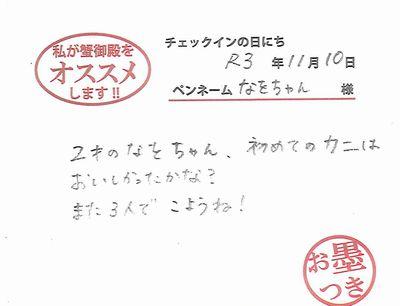 私が蟹御殿を
オススメ
します!!
チェックインの日にち
R3 年 11月 10日
ペンネーム なをちゃん 様
2才のなをちゃん、初めてのカニは
おいしかったかな?
また3人で こようね!
お墨
つき